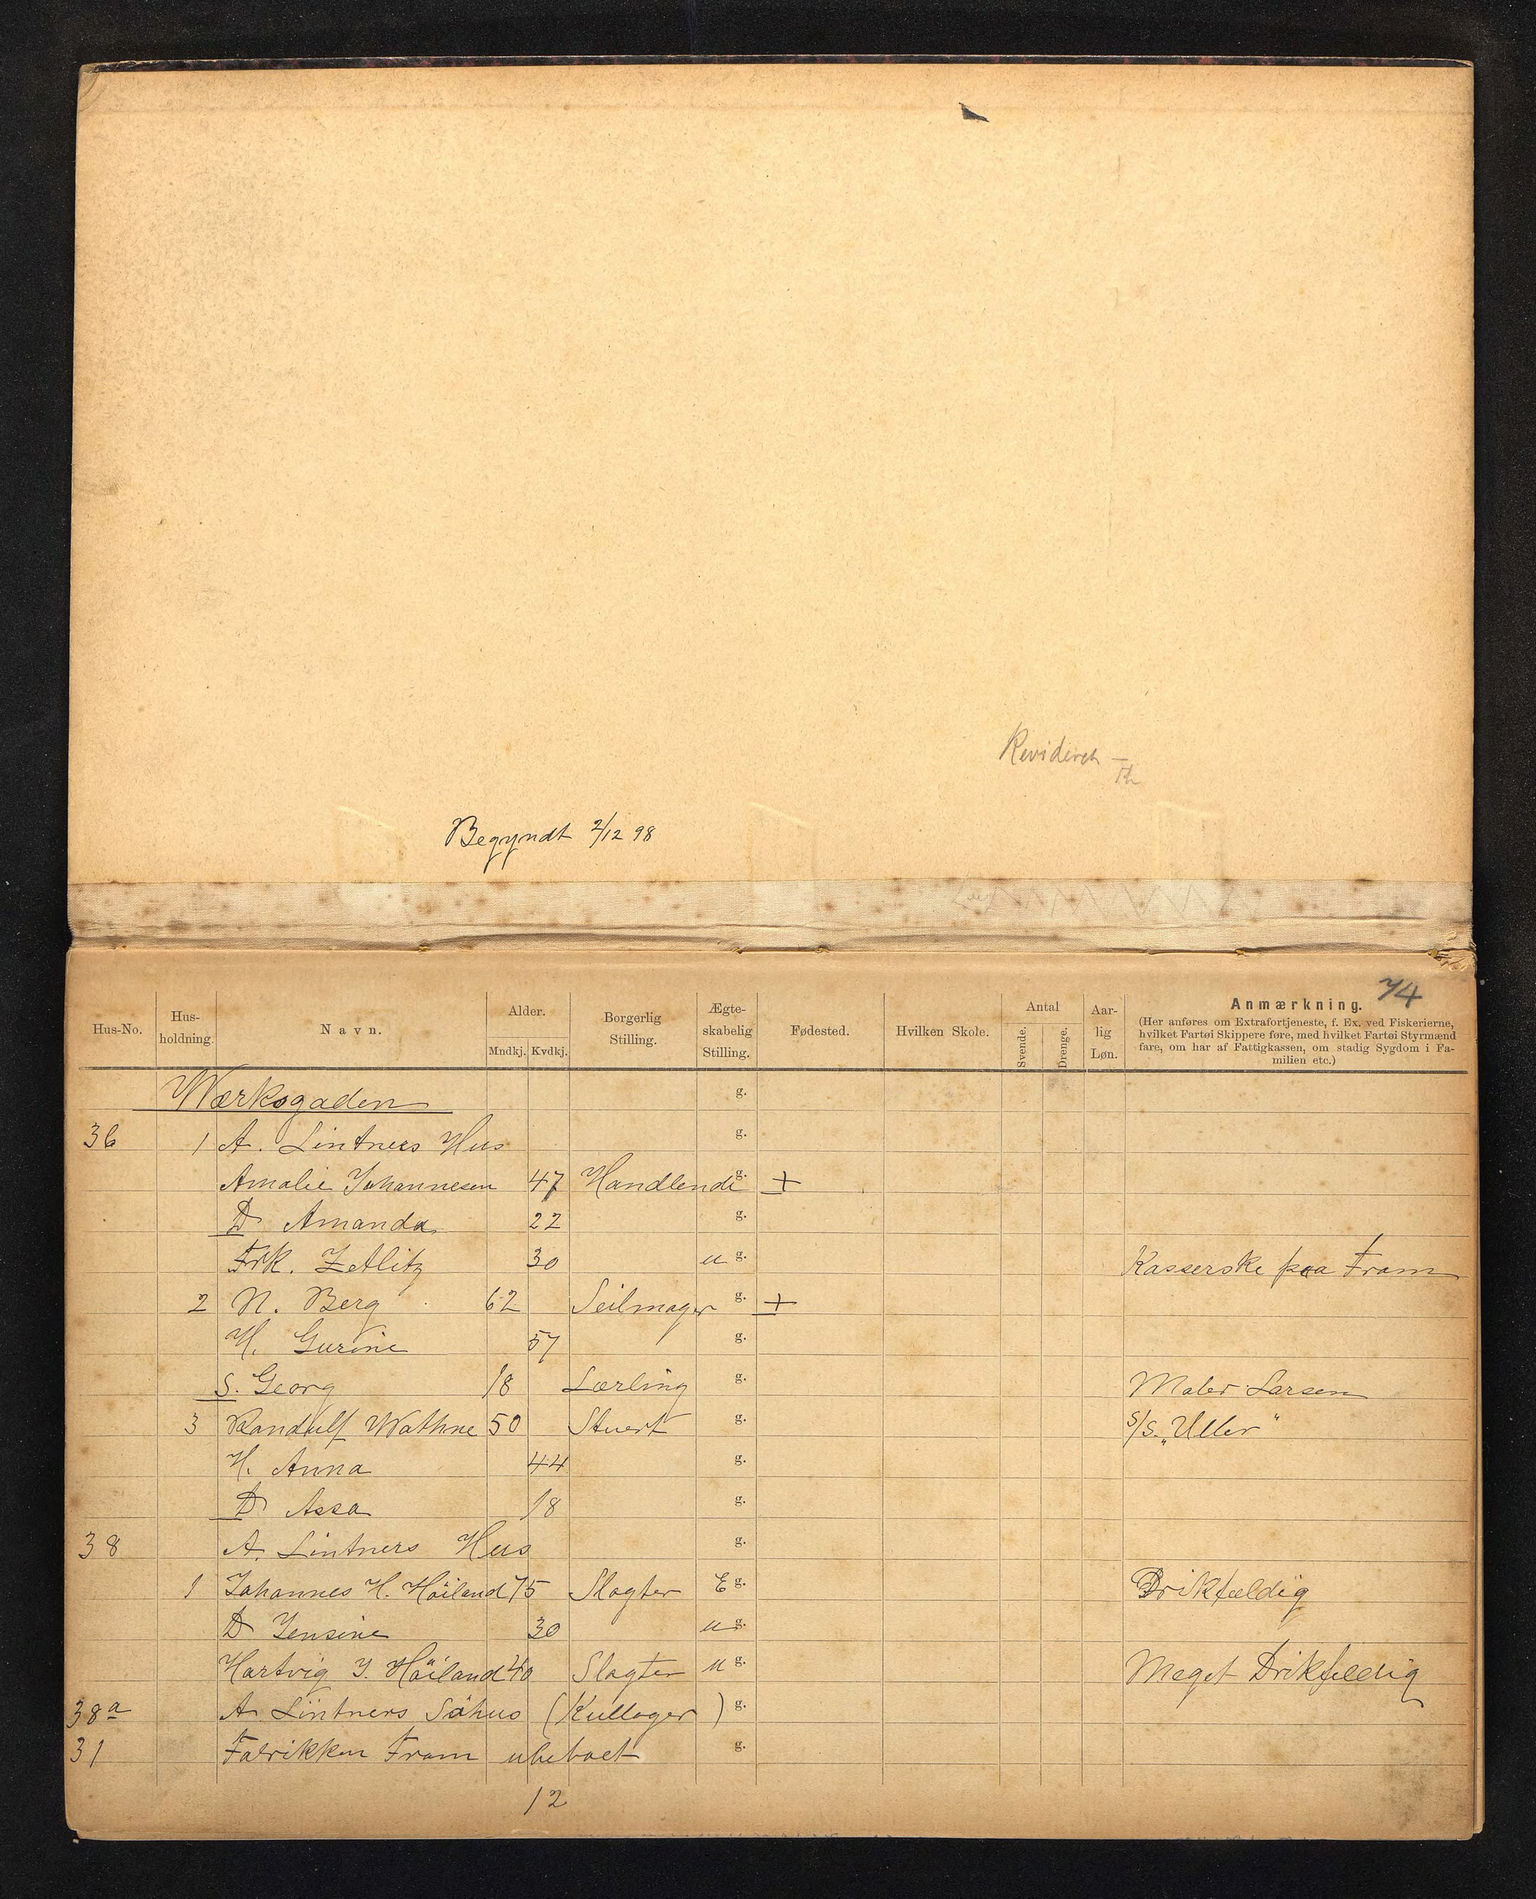 Revideret —
Th
Begyndt 2/12 98
74
Hus-No.
Hus-holdning.
Navn.
Alder.
Mndkj.
Kvdkj.
Borgerlig Stilling.
Ægte-skabelig Stilling.
Fødested.
Hvilken Skole.
Antal
Svende.
Drenge.
Aar-lig Løn.
Anmærkning.
(Her anføres om Extrafortjeneste, f. Ex. ved Fiskerierne,
hvilket Fartøi Skippere føre, med hvilket Fartøi Styrmænd
fare, om har af Fattigkassen, om stadig Sygdom i Fa-
milien etc.)
Værksgaden g.
36 1 A. Lintners Hus g.
Amalie Johannesen 47 Handlende g. +
D Amanda 22 g.
Frk. Zetlitz 30 u g. Kasserske paa Fram
2 N. Berg 62 Seilmager g. +
H. Gurine 57 g.
S. Georg 18 Lærling g. Maler Larsen
3 Randulf Wathne 50 Stuert g. S/S. „Uller"
H. Anna 44 g.
D Assa 18 g.
38 A. Lintners Hus g.
1 Johannes H. Höiland 75 Slagter E g. Drikfældig
D Jensine 30 u g.
Hartvig J. Höiland 40 Slagter u g. Meget Drikfeldig
38a A. Lintners Söhus (Kullager) g.
31 Fabrikken Fram ubeboet g.
12